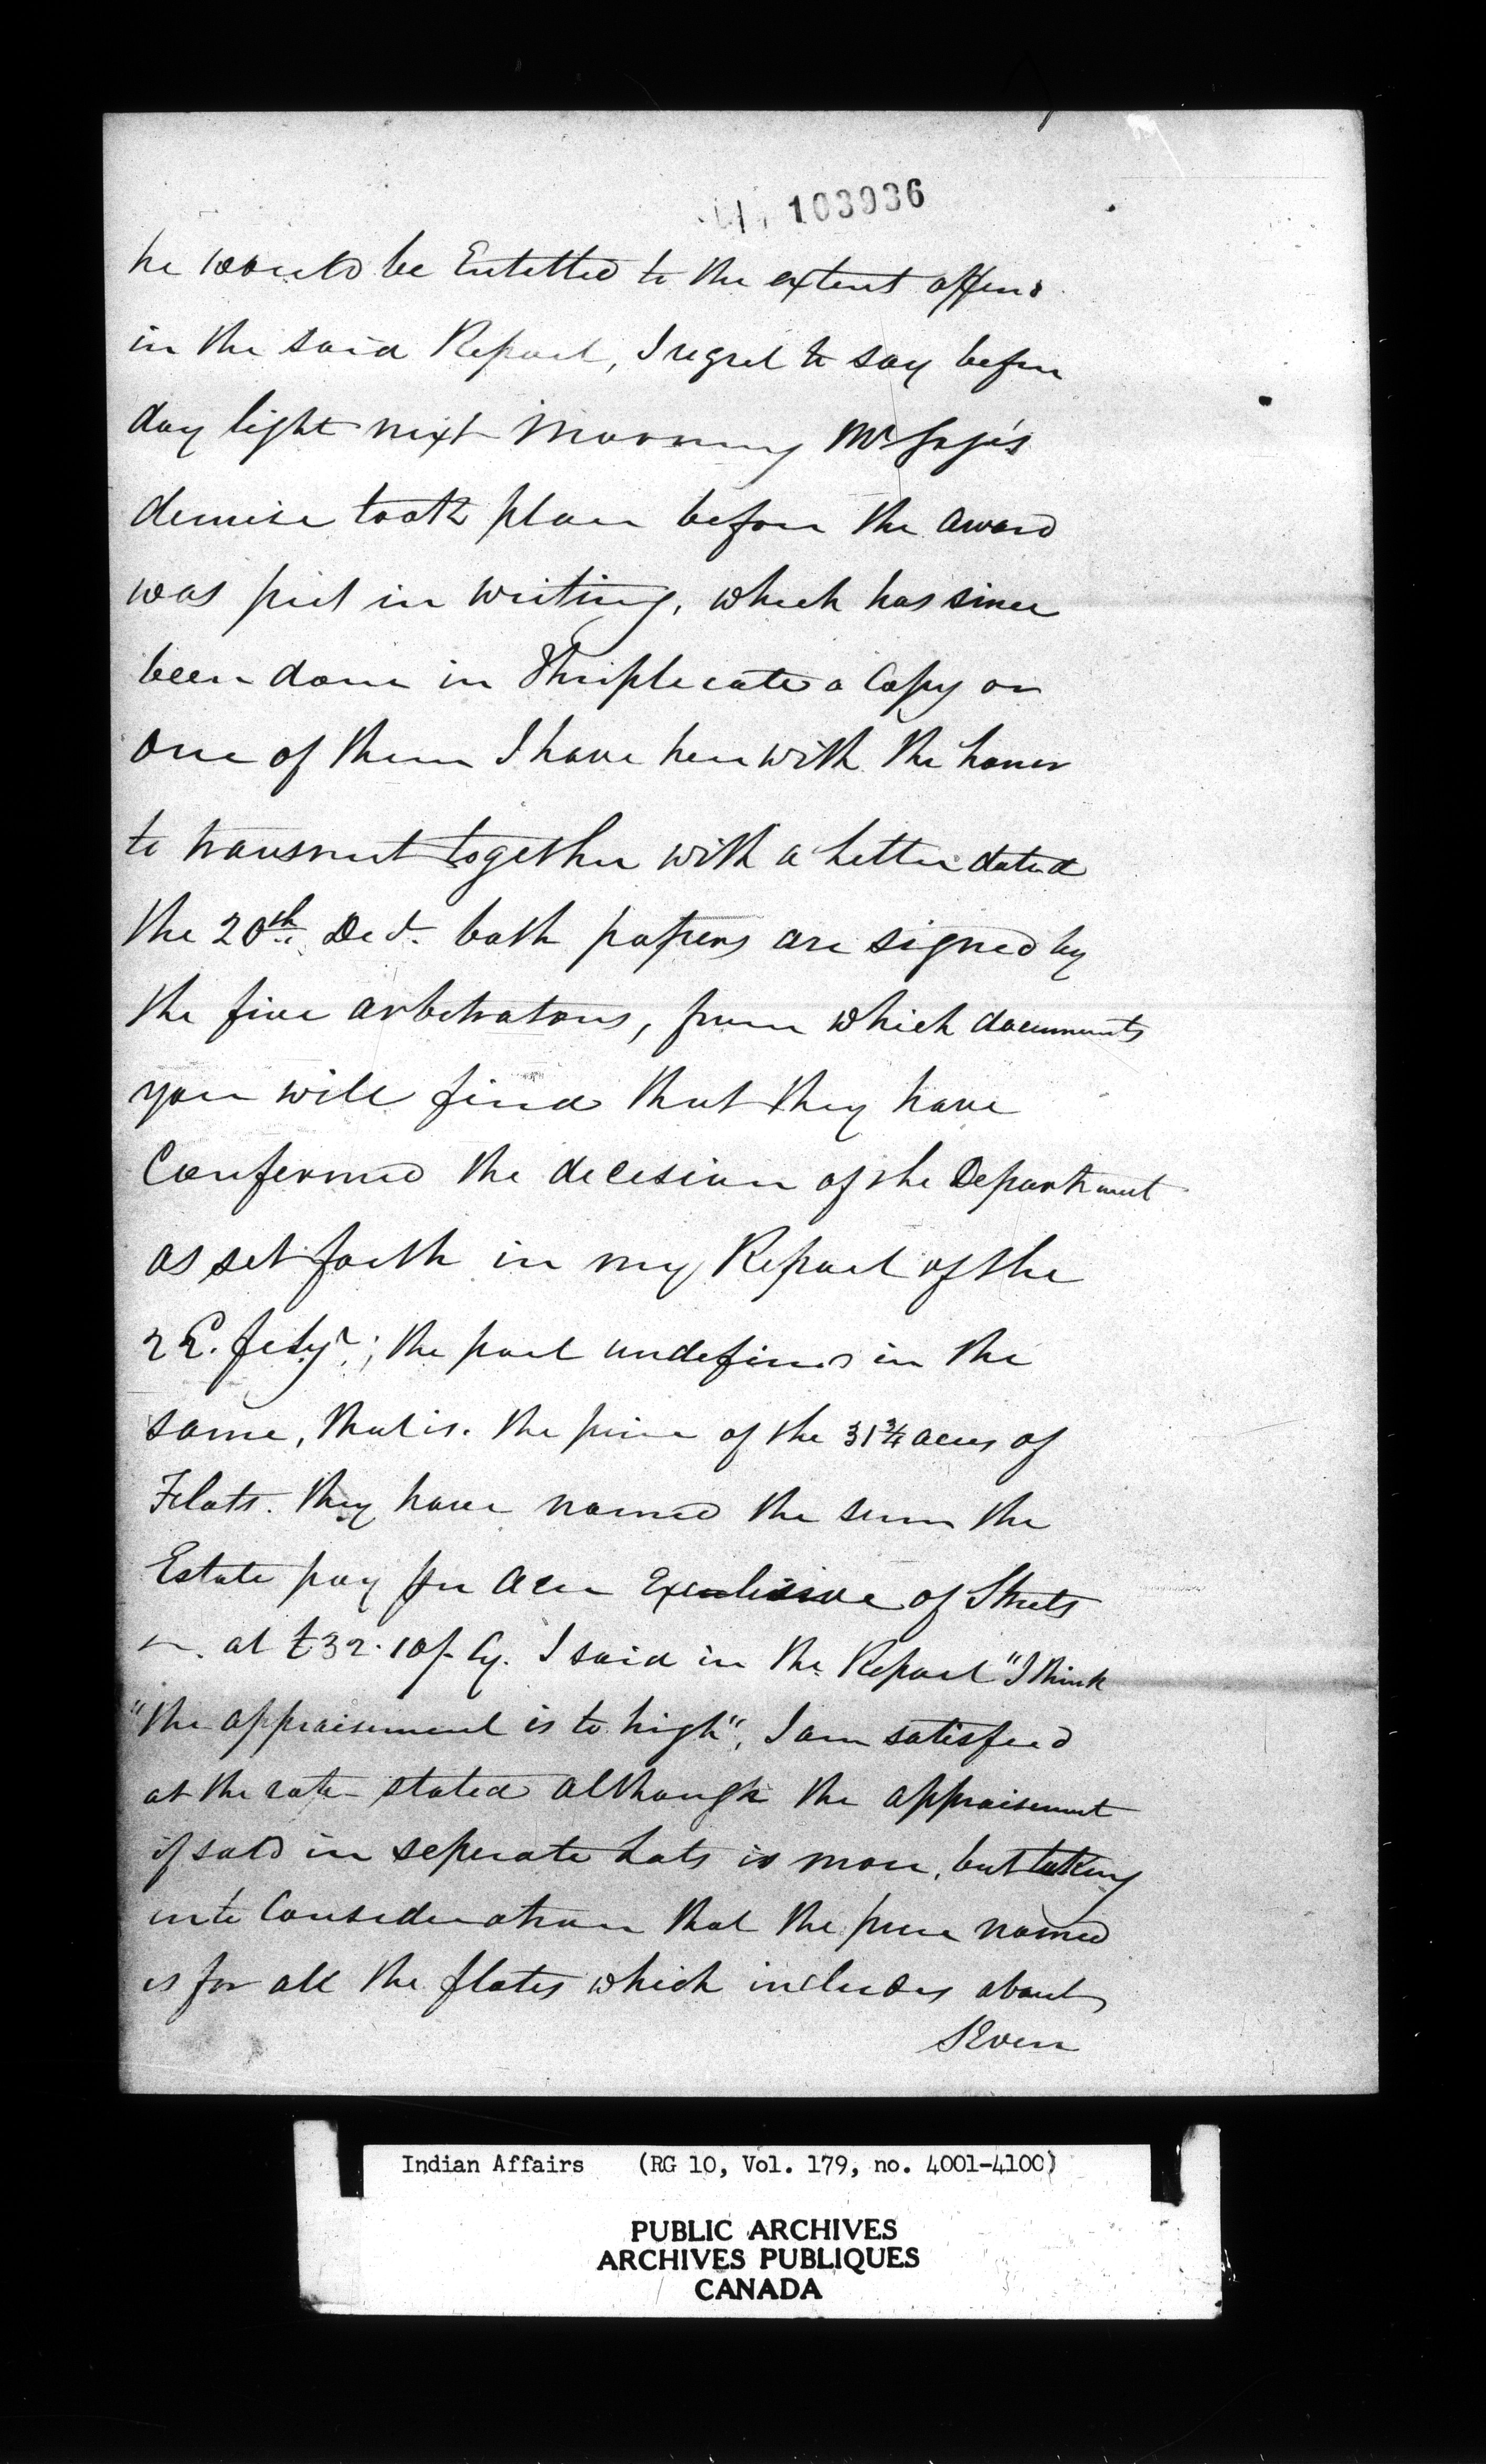 103936
he would be Entitled to the extent offered
in the said Report, I regret to say before
day light next Morning Mr Gage's
demise took place before the award
was put in writing, which has since
been done in Thriplecate a Copy or
one of them I have herewith the honor
to transmit together with a Letter dated
the 20th Dect. both papers are signed by
the five arbetrators, from which documents
you will find that they have
Confermed the decesion of the Department
as set forth in my Report of the
22. Feby; the part undefined in the
same, that is. the price of the 31 3/4 acres of
Flats. they have named the sum the
Estate pay per Acre Exclusive of Streets
at £32.10/- Cy. I said in the Report "I think
"the appraisement is to high", I am satisfied
at the rate stated although the appraisement
if sold in seperate Lots is more, but taking
into Consideration that the price named
is for all the flats which includes about
Seven
Indian Affairs (RG 10, Vol. 179, no. 4001-4100)
PUBLIC ARCHIVES
ARCHIVES PUBLIQUES
CANADA